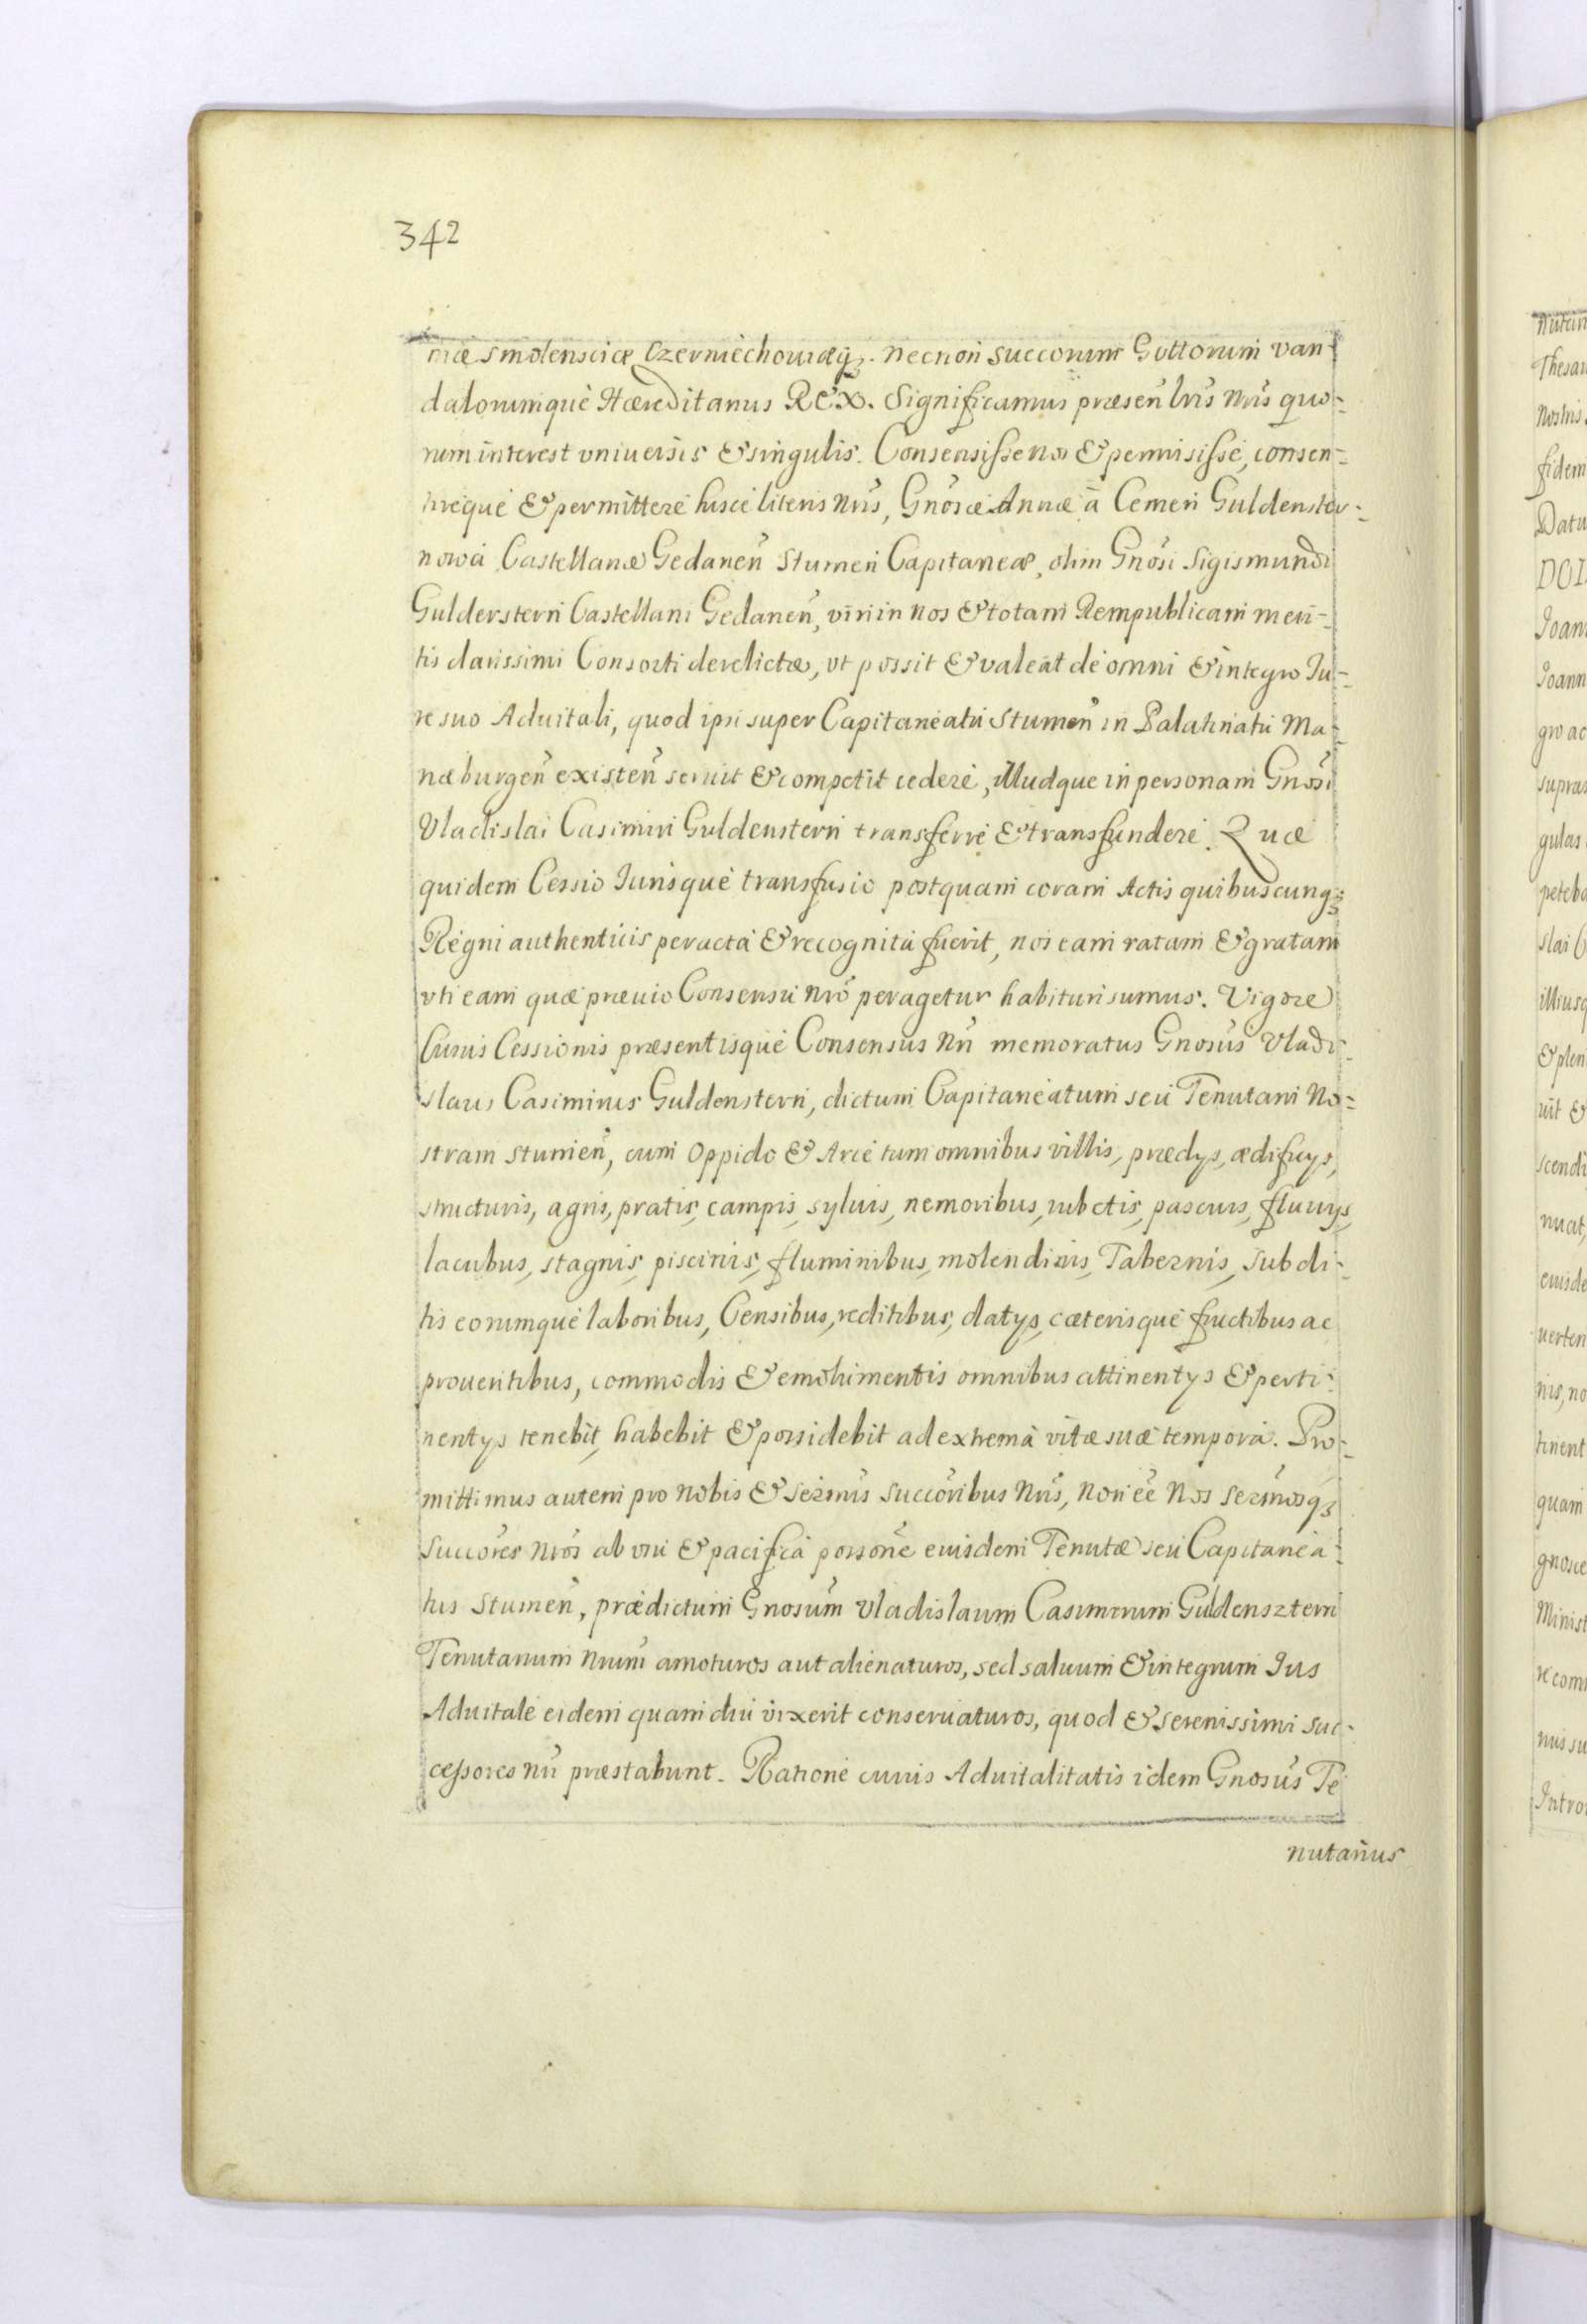 342
niæ Smolensciæ Czerniechouiæq3. necnon Succorum Gottorum van-
dalorumque Hæreditarius REX. Significamus præsen̄ lr̄is nr̄is quo-
rum interest vniuersis & singulis. Consensisse nos & permisisse, consen-
tireque & permittere hisce literis nr̄is, Gnōsæ Annæ ā Cemen Guldenster-
nowa Castellanæ Gedanen̄ Stumen Capitaneæ, olim Gnōsi Sigismundi
Gulderstern Castellani Gedanen̄, viri in nos & totam Rempublicam meri-
tis clarissimi Consorti derelictæ, vt possit & valeat de omni & integro Ju-
re suo Aduitali, quod ipsi super Capitaneatū Stumen̄ in Palatinatū Ma-
riæburgen̄ existen̄ seruit & competit cedere, illudque in personam Gnōsi
Vladislai Casimiri Guldenstern transferre & transfundere. Quæ
quidem Cessio Jurisque transfusio postquam coram Actis quibuscunq3
Regni authenticis peracta & recognita fuerit, nos eam ratam & gratam
vti eam quæ præuio Consensu nr̄o peragetur habituri sumus. Vigore
Cuius Cessionis præsentisque Consensus nr̄i memoratus Gnosūs Vladi-
slaus Casimirus Guldenstern, dictum Capitaneatum seu Tenutam No-
stram Stumen̄, cum Oppido & Arce tum omnibus villis, prædys, ædificys,
structuris, agris, pratis, campis, syluis, nemoribus, rubetis, pascuis, fluuys,
lacubus, stagnis, piscinis, fluminibus, molendinis, Tabernis, Subdi-
tis eorumque laboribus, Censibus, reditibus, datys, cæterisque fructibus ac
prouentibus, commodis & emolumentis omnibus attinentys & perti-
nentys tenebit, habebit & possidebit ad extrema vitæ suæ tempora. Pro-
mittimus autem pro nobis & sermīs succōribus nr̄is, non eē Nos sermōsq3
Succōres nr̄os ab vsu & pacifica possōne eiusdem Tenutæ seu Capitanea-
tus Stumen̄, prædictum Gnosūm Vladislaum Casimirum Guldensztern
Tenutarium nr̄um amoturos aut alienaturos, sed saluum & integrum Jus
Aduitale eidem quam diu vixerit conseruaturos, quod & serenissimi suc-
cessores nr̄i præstabunt. Ratione cuius Aduitalitatis idem Gnosūs Te
nutarius